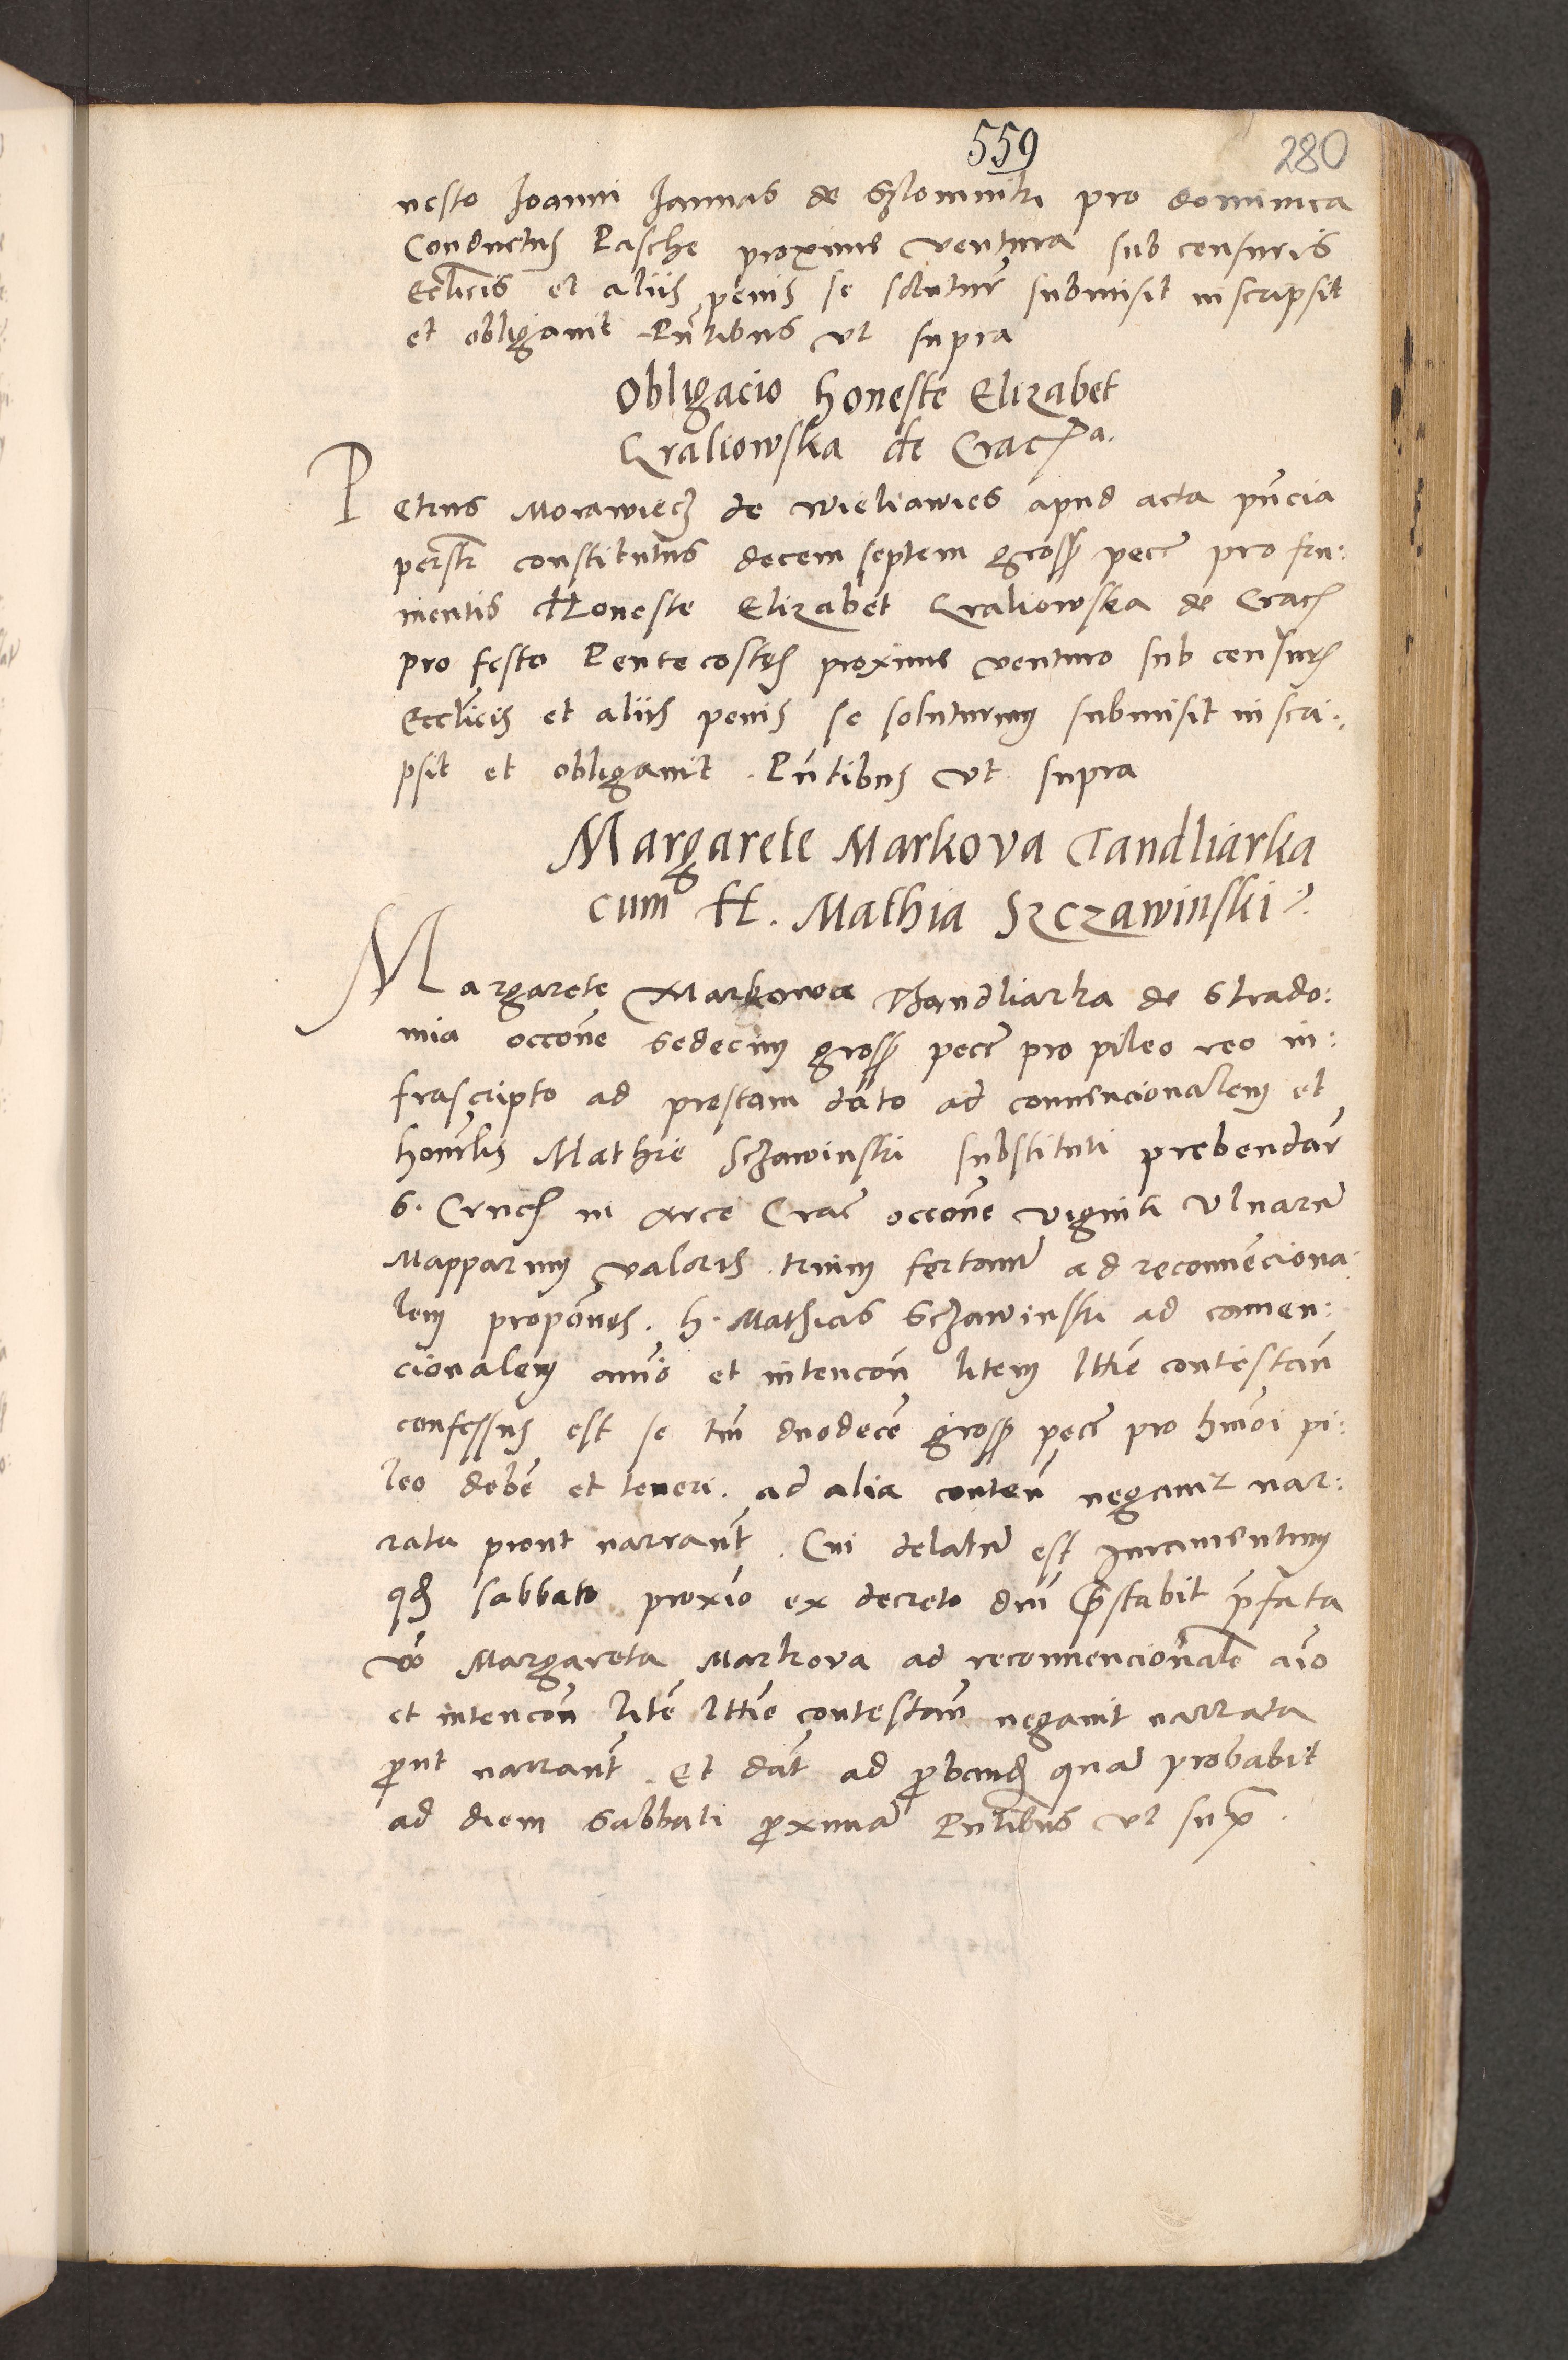 559
280
nesto Joanni Jannas de Szlomniki pro dominica
Conductus Pasche proxime ventura sub censuris
Ecclicis et aliis penis se solutur̄ submisit inscripsit
et obligauit Pn̄tibus vt supra
Obligacio honeste Elizabet
Graliowska de Crac
Petrus Morawiecz de Wieliawies apud acta pn̄cia
constitutus decem septem gross pecc̄ pro fru:
mentis Honeste Elizabet Graliowska de Crac
pro festo Pentecostes proxime venturo sub censuris
Eccl̄icis et aliis penis se soluturum submisit inscri:
psit et obligauit . Pn̄tibus vt supra
Margarete Markova Tandliarka
cum H. Mathia Szczawinski
Margarete Markowa Thandliarka de Strado:
mia occōne sedecim gross pecc̄ pro pileo reo in:
frascripto ad prestam dato ad conuencionalem et
honorabilis Mathie Sczawinski substituti prebendar̄
S. Crucis in Arce Crac̄ occōne viginti vlnarū
Mapparum valoris trium fertonū ad reconuenciona
lem propōnes. h. Mathias Sczawinski ad conuen:
cionalem anīo et intencōn litem lttīe contestan̄
confessus est se tm̄ duodecē gross pecc̄ pro hm̄oi pi:
leo debē et teneri. ad alia conten̄ negauit nar:
rata prout narrant̄ . Cui delatū est Juramentum
qd sabbato proxīo ex decreto dnī p̄stabit p̄fata
vō Margareta Markova ad reconuencionalē aīo
et intencōn litē lttīe contestan̄ negauit narrata
p̄ut narrant̄ . Et dat̄ ad p̄band quā probabit
ad diem Sabbati p̄ximā Pn̄tibus vt sup̄ .